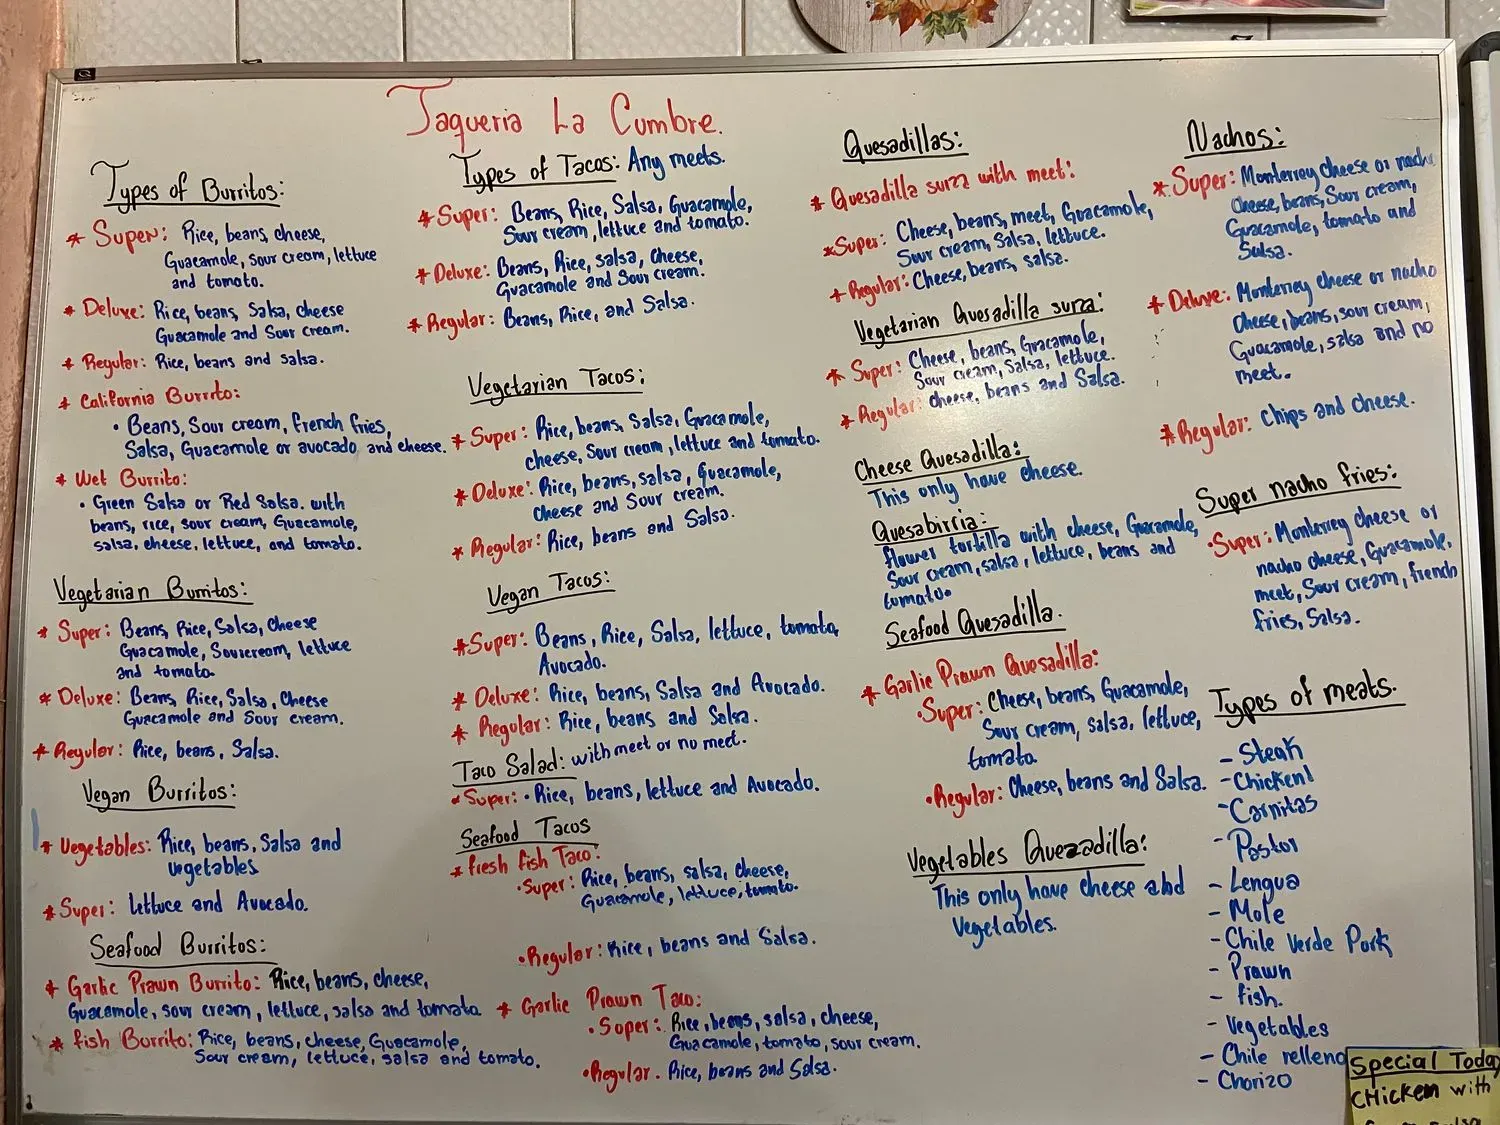 Taqueria La Cumbre.
Types of Burritos:
* Super: Rice, beans, cheese,
Guacamole, sour cream, lettuce
and tomato.
* Deluxe: Rice, beans, Salsa, cheese
Guacamole and Sour cream.
* Regular: Rice, beans and salsa.
* California Burrito:
• Beans, Sour cream, french fries,
Salsa, Guacamole or avocado and cheese.
* Wet Burrito:
• Green Salsa or Red Salsa. with
beans, rice, sour cream, Guacamole,
salsa, cheese, lettuce, and tomato.
Vegetarian Burritos:
* Super: Beans, Rice, Salsa, Cheese
Guacamole, Sourcream, lettuce
and tomato.
* Deluxe: Beans, Rice, Salsa, Cheese
Guacamole and Sour cream.
* Regular: Rice, beans, Salsa.
Vegan Burritos:
* Vegetables: Rice, beans, Salsa and
vegetables
* Super: lettuce and Avocado.
Seafood Burritos:
* Garlic Prawn Burrito: Rice, beans, cheese,
Guacamole, sour cream, lettuce, salsa and tomato
* fish Burrito: Rice, beans, cheese, Guacamole,
Sour cream, lettuce, salsa and tomato.
Types of Tacos: Any meets.
* Super: Beans, Rice, Salsa, Guacamole,
Sour cream, lettuce and tomato.
* Deluxe: Beans, Rice, salsa, cheese,
Guacamole and Sour cream.
* Regular: Beans, Rice, and Salsa.
Vegetarian Tacos:
* Super: Rice, beans, Salsa, Guacamole,
cheese, Sour cream, lettuce and tomato.
* Deluxe: Rice, beans, salsa, Guacamole,
cheese and Sour cream.
* Regular: Rice, beans and Salsa.
Vegan Tacos:
* Super: Beans, Rice, Salsa, lettuce, tomato,
Avocado.
* Deluxe: Rice, beans, Salsa and Avocado.
* Regular: Rice, beans and Salsa.
Taco Salad: with meet or no meet.
• Super: • Rice, beans, lettuce and Avocado.
Seafood Tacos
* fresh fish Taco:
• Super: Rice, beans, salsa, cheese,
Guacamole, lettuce, tomato.
• Regular: Rice, beans and Salsa.
* Garlic Prawn Taco:
• Super: Rice, beans, salsa, cheese,
Guacamole, tomato, sour cream.
• Regular. Rice, beans and Salsa.
Quesadillas:
* Quesadilla surza with meet:
* Super: Cheese, beans, meet, Guacamole,
Sour cream, Salsa, lettuce.
* Regular: Cheese, beans, salsa.
Vegetarian Quesadilla surza:
* Super: Cheese, beans, Guacamole,
Sour cream, Salsa, lettuce.
* Regular: cheese, beans and Salsa.
Cheese Quesadilla:
This only have cheese.
Quesabirria:
flower tortilla with cheese, Guacamole,
Sour cream, salsa, lettuce, beans and
tomato.
Seafood Quesadilla.
* Garlic Prawn Quesadilla:
• Super: Cheese, beans, Guacamole,
Sour cream, salsa, lettuce,
tomato.
• Regular: Cheese, beans and Salsa.
Vegetables Quezadilla:
This only have cheese and
Vegetables.
Nachos:
* Super: Monterrey cheese or nacho
cheese, beans, Sour cream,
Guacamole, tomato and
Salsa.
* Deluxe: Monterrey cheese or nacho
cheese, beans, sour cream,
Guacamole, salsa and no
meet.
* Regular: chips and cheese.
Super nacho fries:
• Super: Monterrey cheese or
nacho cheese, Guacamole,
meet, Sour cream, french
fries, Salsa.
Types of meats.
- Steak
- Chicken
- Carnitas
- Pastor
- Lengua
- Mole
- Chile Verde Pork
- Prawn
- fish.
- Vegetables
- Chile relleno
- Chorizo
Special Today
CHicken with